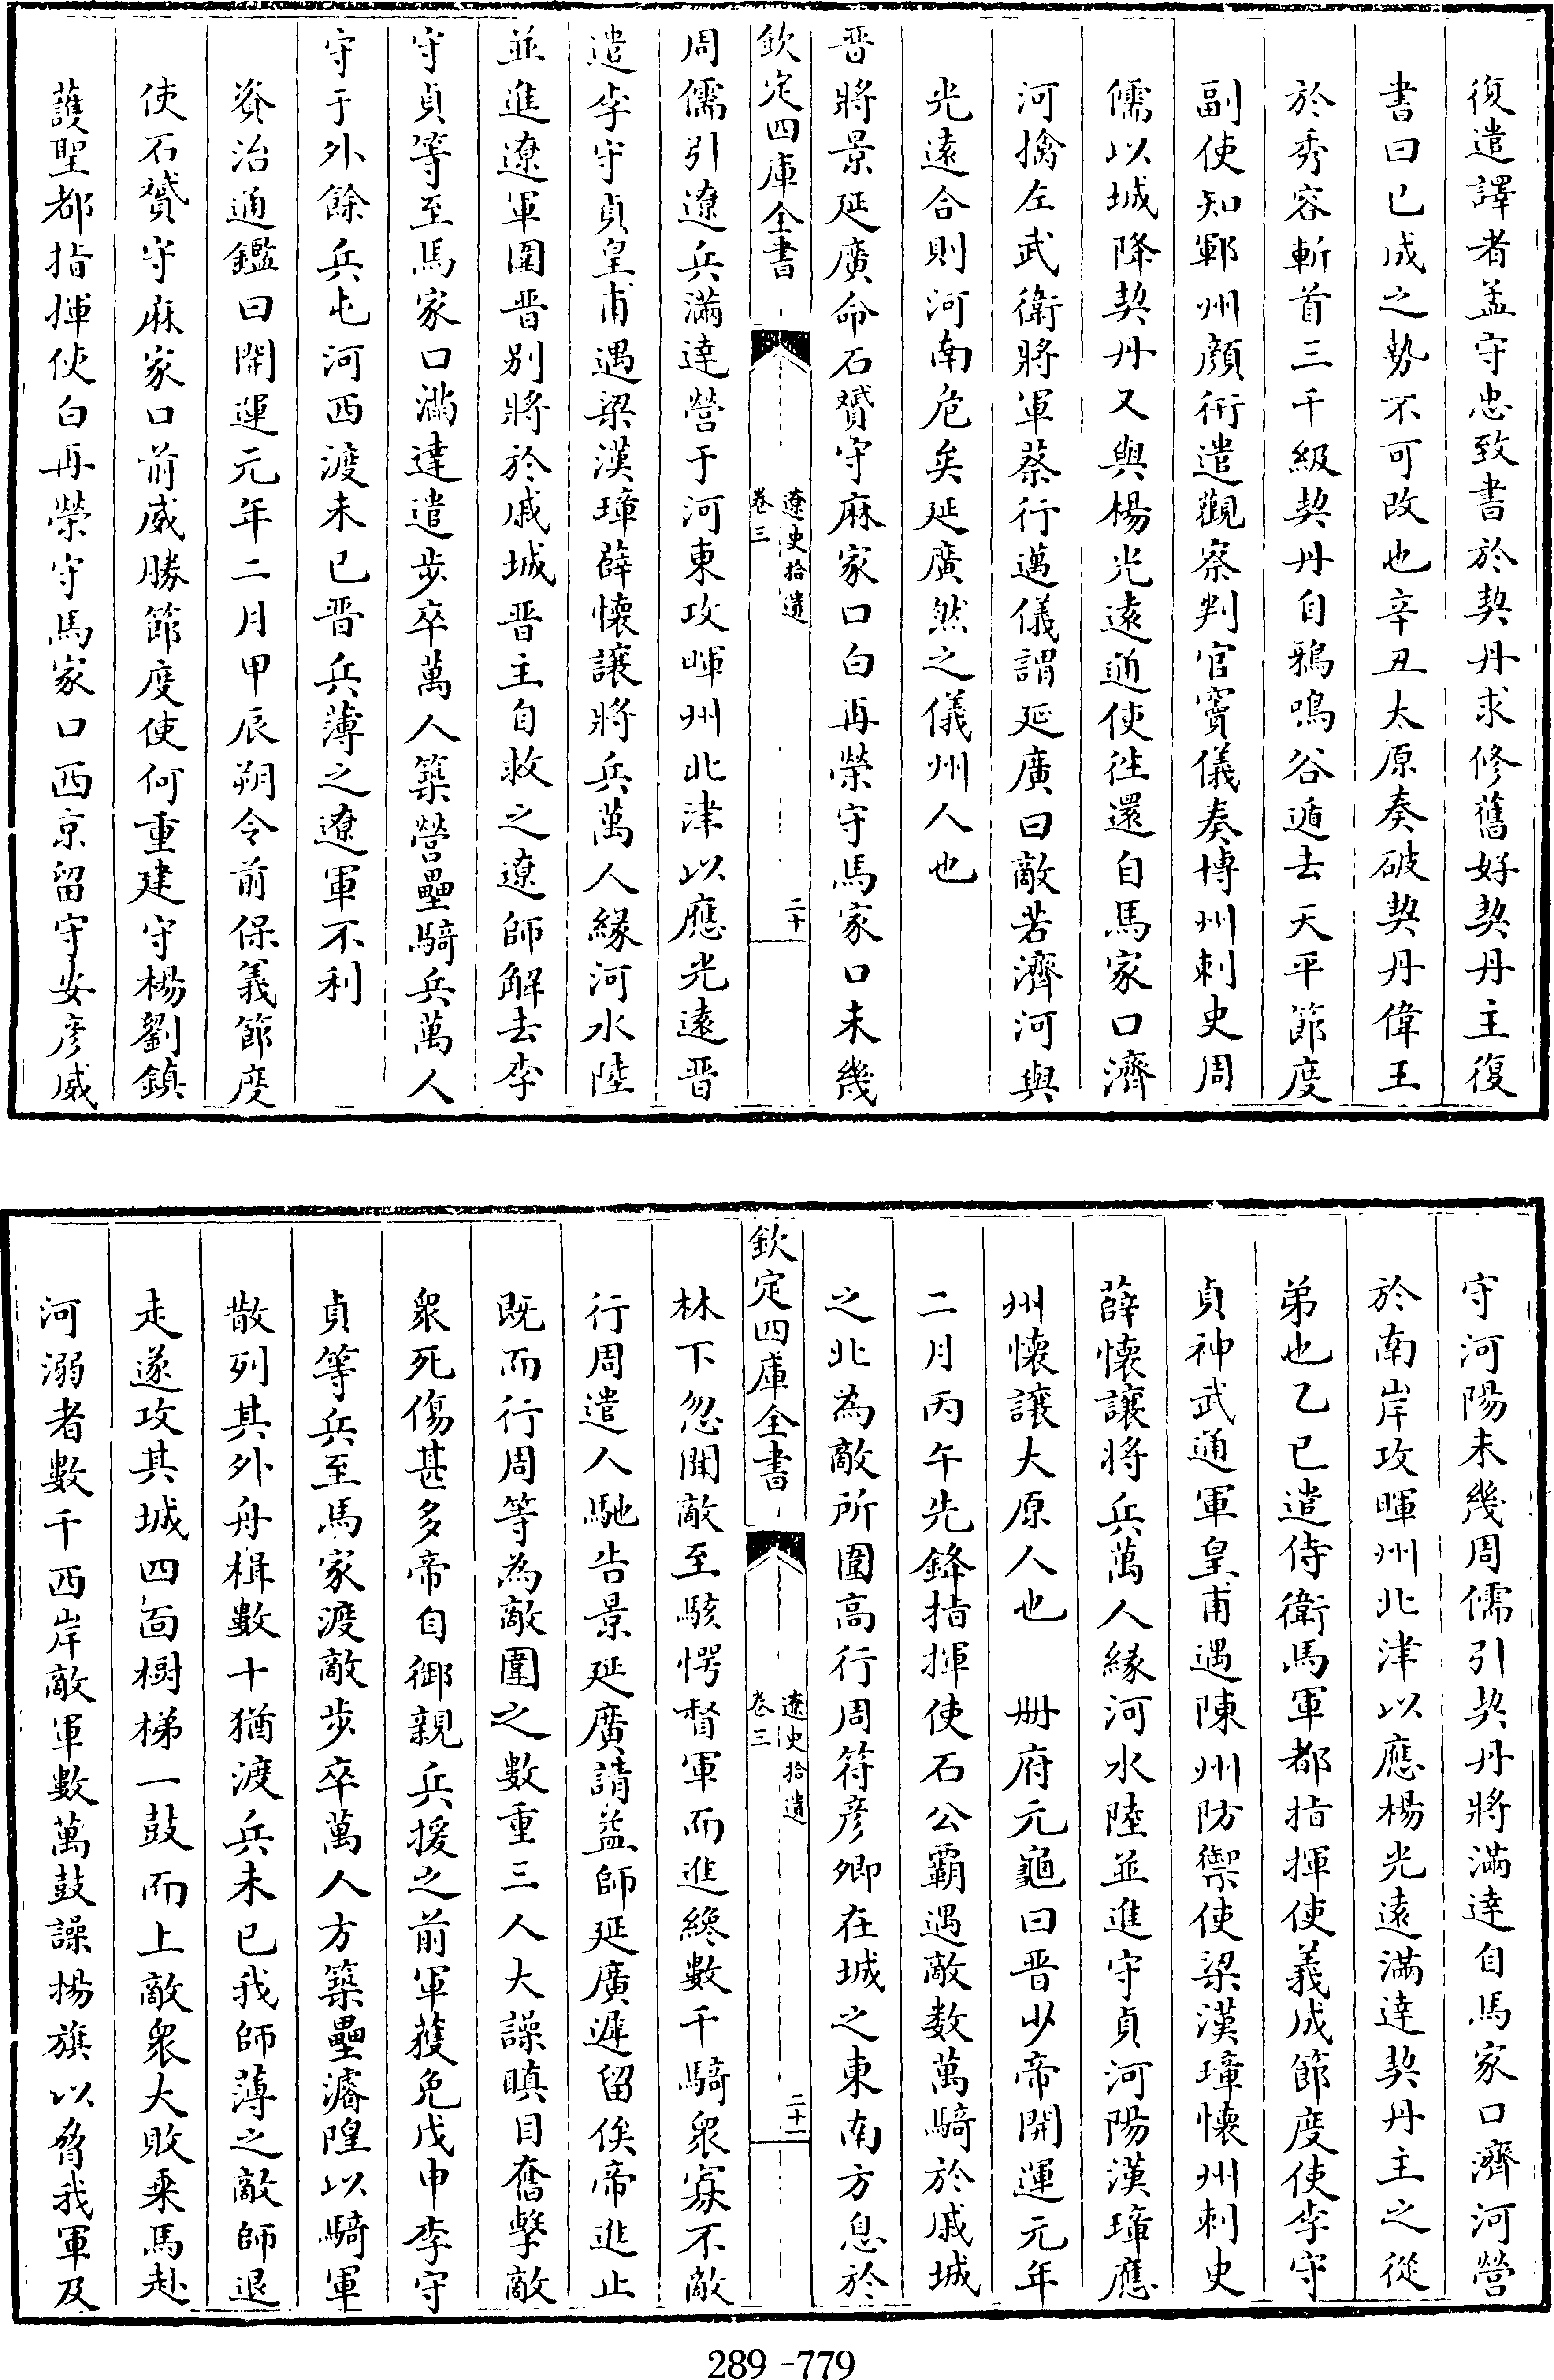 復遣譯者孟守忠致書於契丹求修舊好契丹主復
書曰已成之勢不可改也辛丑太原奏破契丹偉王
於秀容斬首三千級契丹自鴉鳴谷遁去天平節度
副使知鄆州顔衎遣觀察判官竇儀奏博州刺史周
儒以城降契丹又與楊光遠通使徃還自馬家口濟
河擒左武衛將軍蔡行遇儀謂延廣曰敵若濟河與
光遠合則河南危矣延廣然之儀州人也
晉將景延廣命石贇守麻家口白再榮守馬家口未幾
欽定四庫全書
遼史拾遺
卷三
二十
周儒引遼兵滿達營于河東攻鄆州北津以應光遠晉
遣李守貞皇甫遇梁漢璋薛懷讓將兵萬人緣河水陸
並進遼軍圍晉别將於戚城晉主自救之遼師解去李
守貞等至馬家口滿達遣步卒萬人築營壘騎兵萬人
守于外餘兵屯河西渡未已晉兵薄之遼軍不利
資治通鑑曰開運元年二月甲辰朔令前保義節度
使石贇守麻家口前威勝節度使何重建守楊劉鎮
䕶聖都指揮使白再榮守馬家口西京留守安彦威
守河陽未幾周儒引契丹將滿達自馬家口濟河營
於南岸攻鄆州北津以應楊光遠滿達契丹主之從
弟也乙巳遣侍衛馬軍都指揮使義成節度使李守
貞神武通軍皇甫遇陳州防禦使梁漢璋懷州刺史
薛懷讓將兵萬人緣河水陸並進守貞河陽漢璋應
州懷讓大原人也　冊府元龜曰晉少帝開運元年
二月丙午先鋒指揮使石公霸遇敵数萬騎於戚城
之北為敵所圍高行周符彦卿在城之東南方息於
欽定四庫全書
遼史拾遺
卷三
二十一
林下忽聞敵至駭愕督軍而進纔數千騎衆寡不敵
行周遣人馳告景延廣請益師延廣遲留俟帝進止
既而行周等為敵圍之數重三人大譟瞋目奮擊敵
衆死傷甚多帝自御親兵援之前軍獲免戊申李守
貞等兵至馬家渡敵步卒萬人方築壘濬隍以騎軍
散列其外舟楫數十猶渡兵未已我師薄之敵師退
走遂攻其城四面樹梯一鼓而上敵衆大敗乗馬赴
河溺者數千西岸敵軍數萬鼓譟揚旗以脅我軍及
289-779